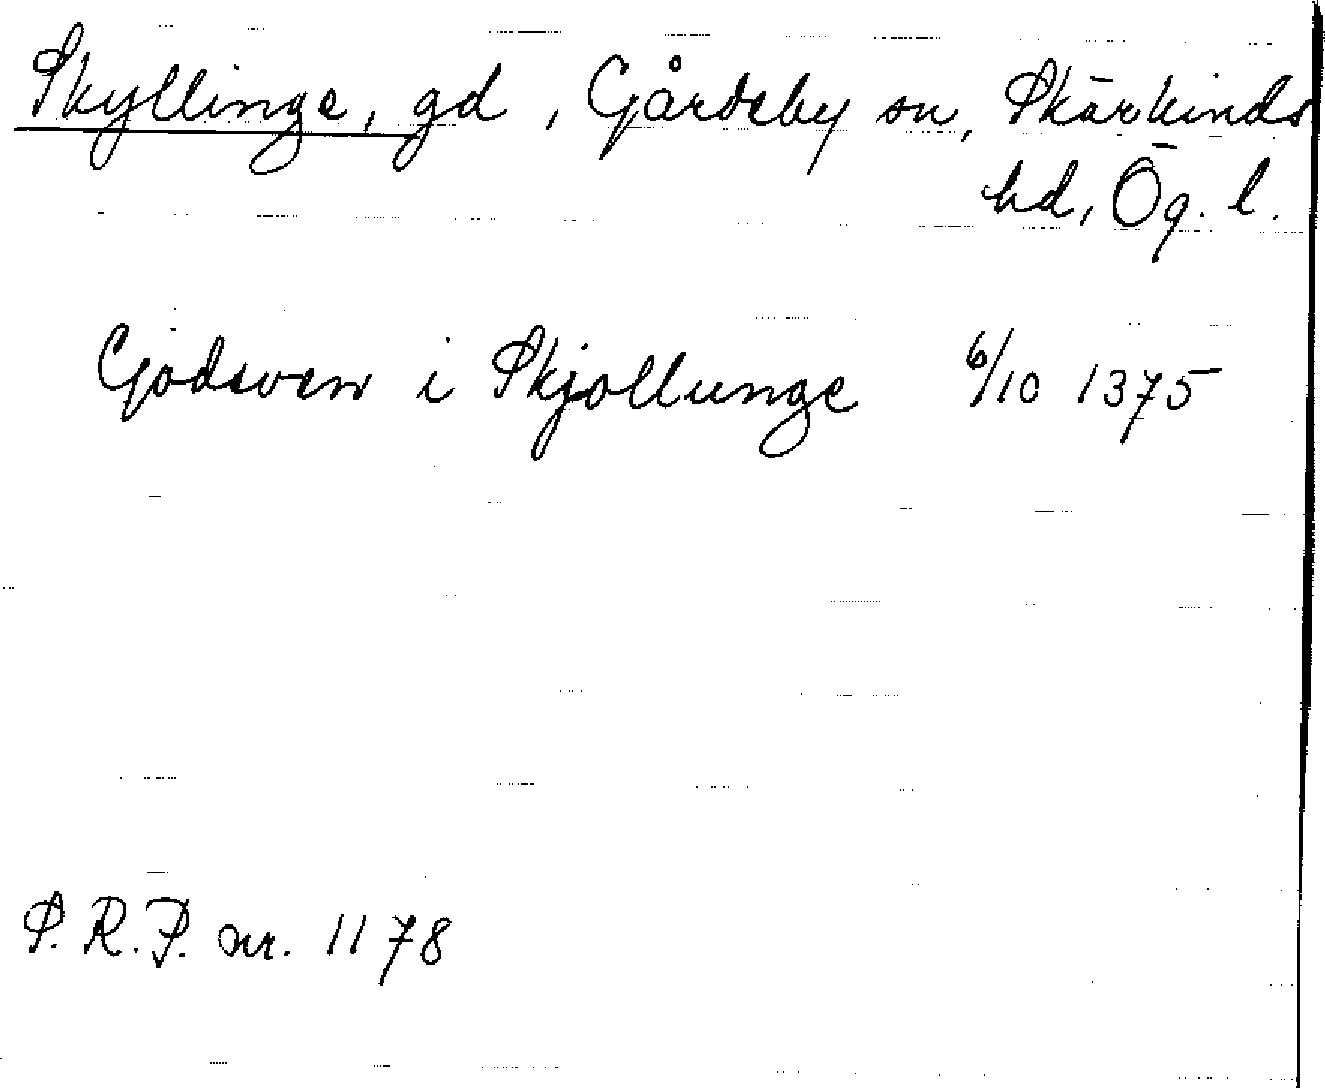 Skyllinge, gd, Gårdeby sn, Skärkinds
hd, Ög. l.
Gødsven i Skjollunge 6/10 1375
S.R.P. nr. 1178